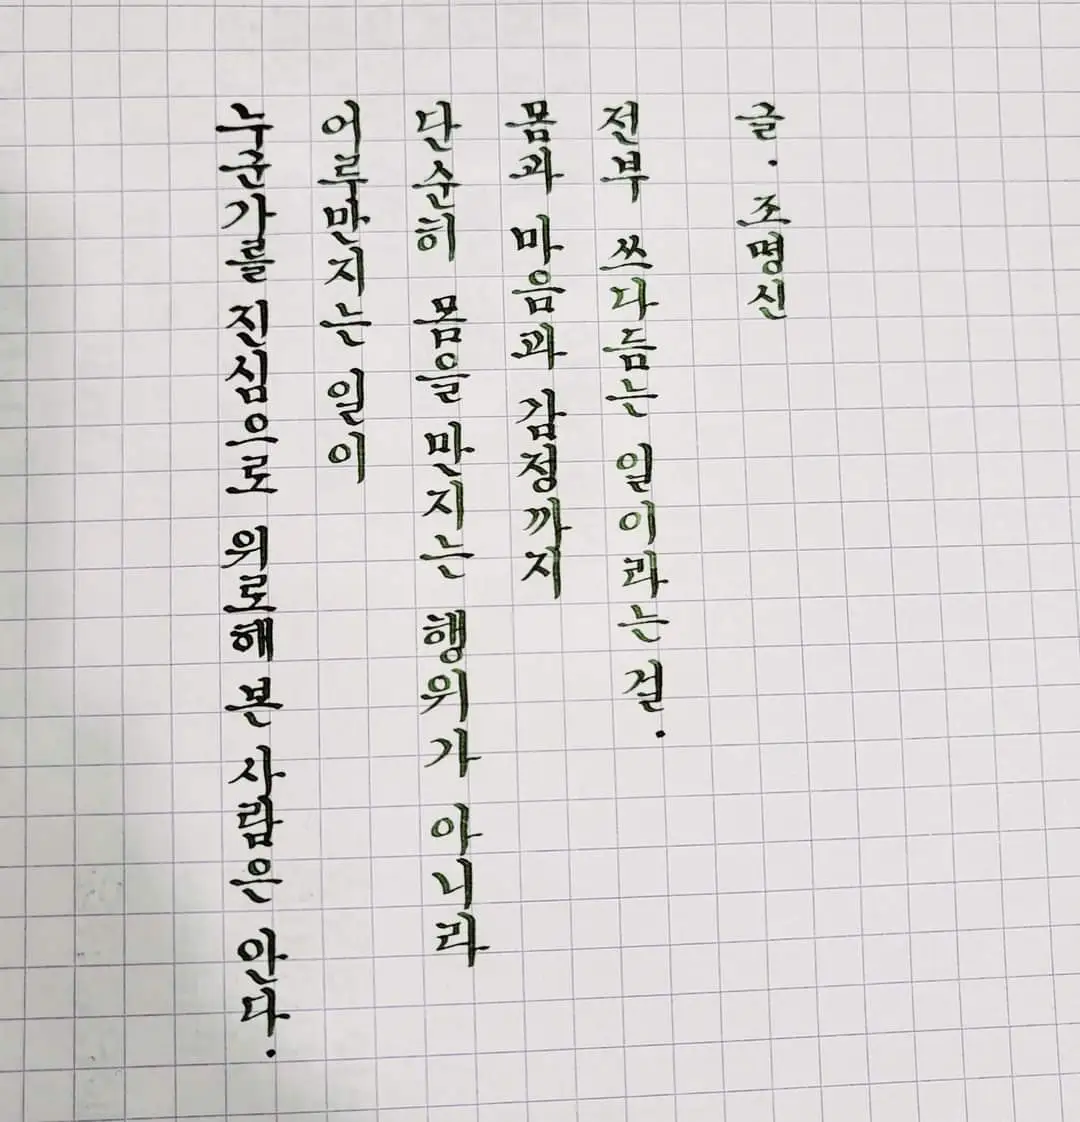 누군가를 진심으로 위로해 본 사람은 안다.
어루만지는 일이
단순히 몸을 만지는 행위가 아니라
몸과 마음과 감정까지
전부 쓰다듬는 일이라는 걸.
글. 조명신